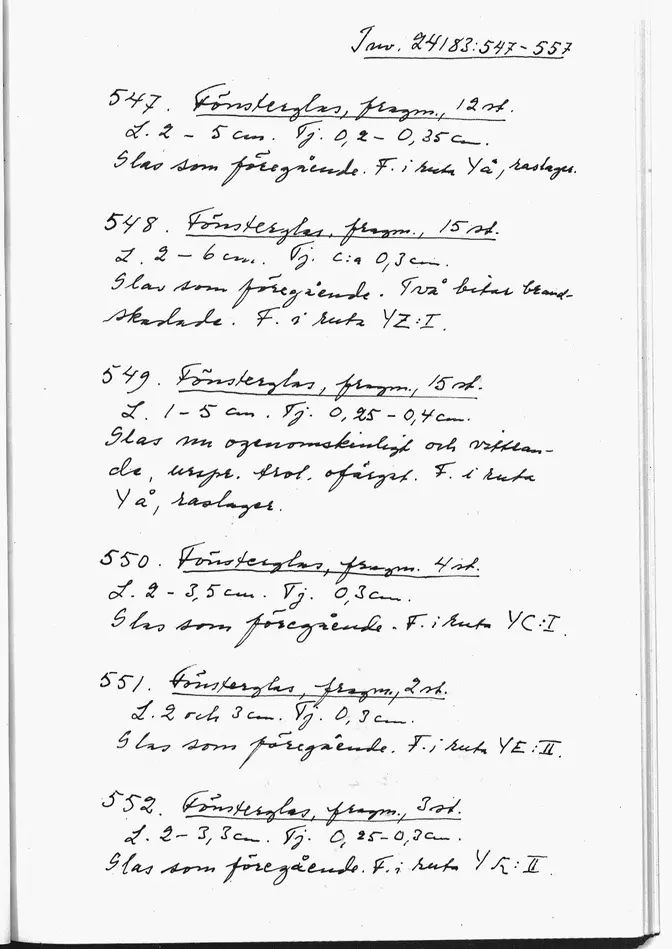 Inv. 24183:547-557
547. Fönsterglas, fragm., 12 st.
L. 2 - 5 cm. Tj. 0,2 - 0,35 cm.
Glas som föregående. F. i ruta YÅ, raslager.
548. Fönsterglas, fragm., 15 st.
L. 2 - 6 cm. Tj. c:a 0,3 cm.
Glas som föregående. Två bitar brand-
skadade. F. i ruta YZ:I.
549. Fönsterglas, fragm., 15 st.
L. 1-5 cm. Tj. 0,25 - 0,4 cm.
Glas nu ogenomskinligt och vittran-
de, urspr. trol. ofärgat. F. i ruta
YÅ, raslager.
550. Fönsterglas, fragm. 4 st.
L. 2 - 3,5 cm. Tj. 0,3 cm.
Glas som föregående. F. i ruta YC:I.
551. Fönsterglas, fragm., 2 st.
L. 2 och 3 cm. Tj. 0,3 cm.
Glas som föregående. F. i ruta YE:II.
552. Fönsterglas, fragm., 3 st.
L. 2 - 3,3 cm. Tj. 0,25-0,3 cm.
Glas som föregående. F. i ruta Y :II.